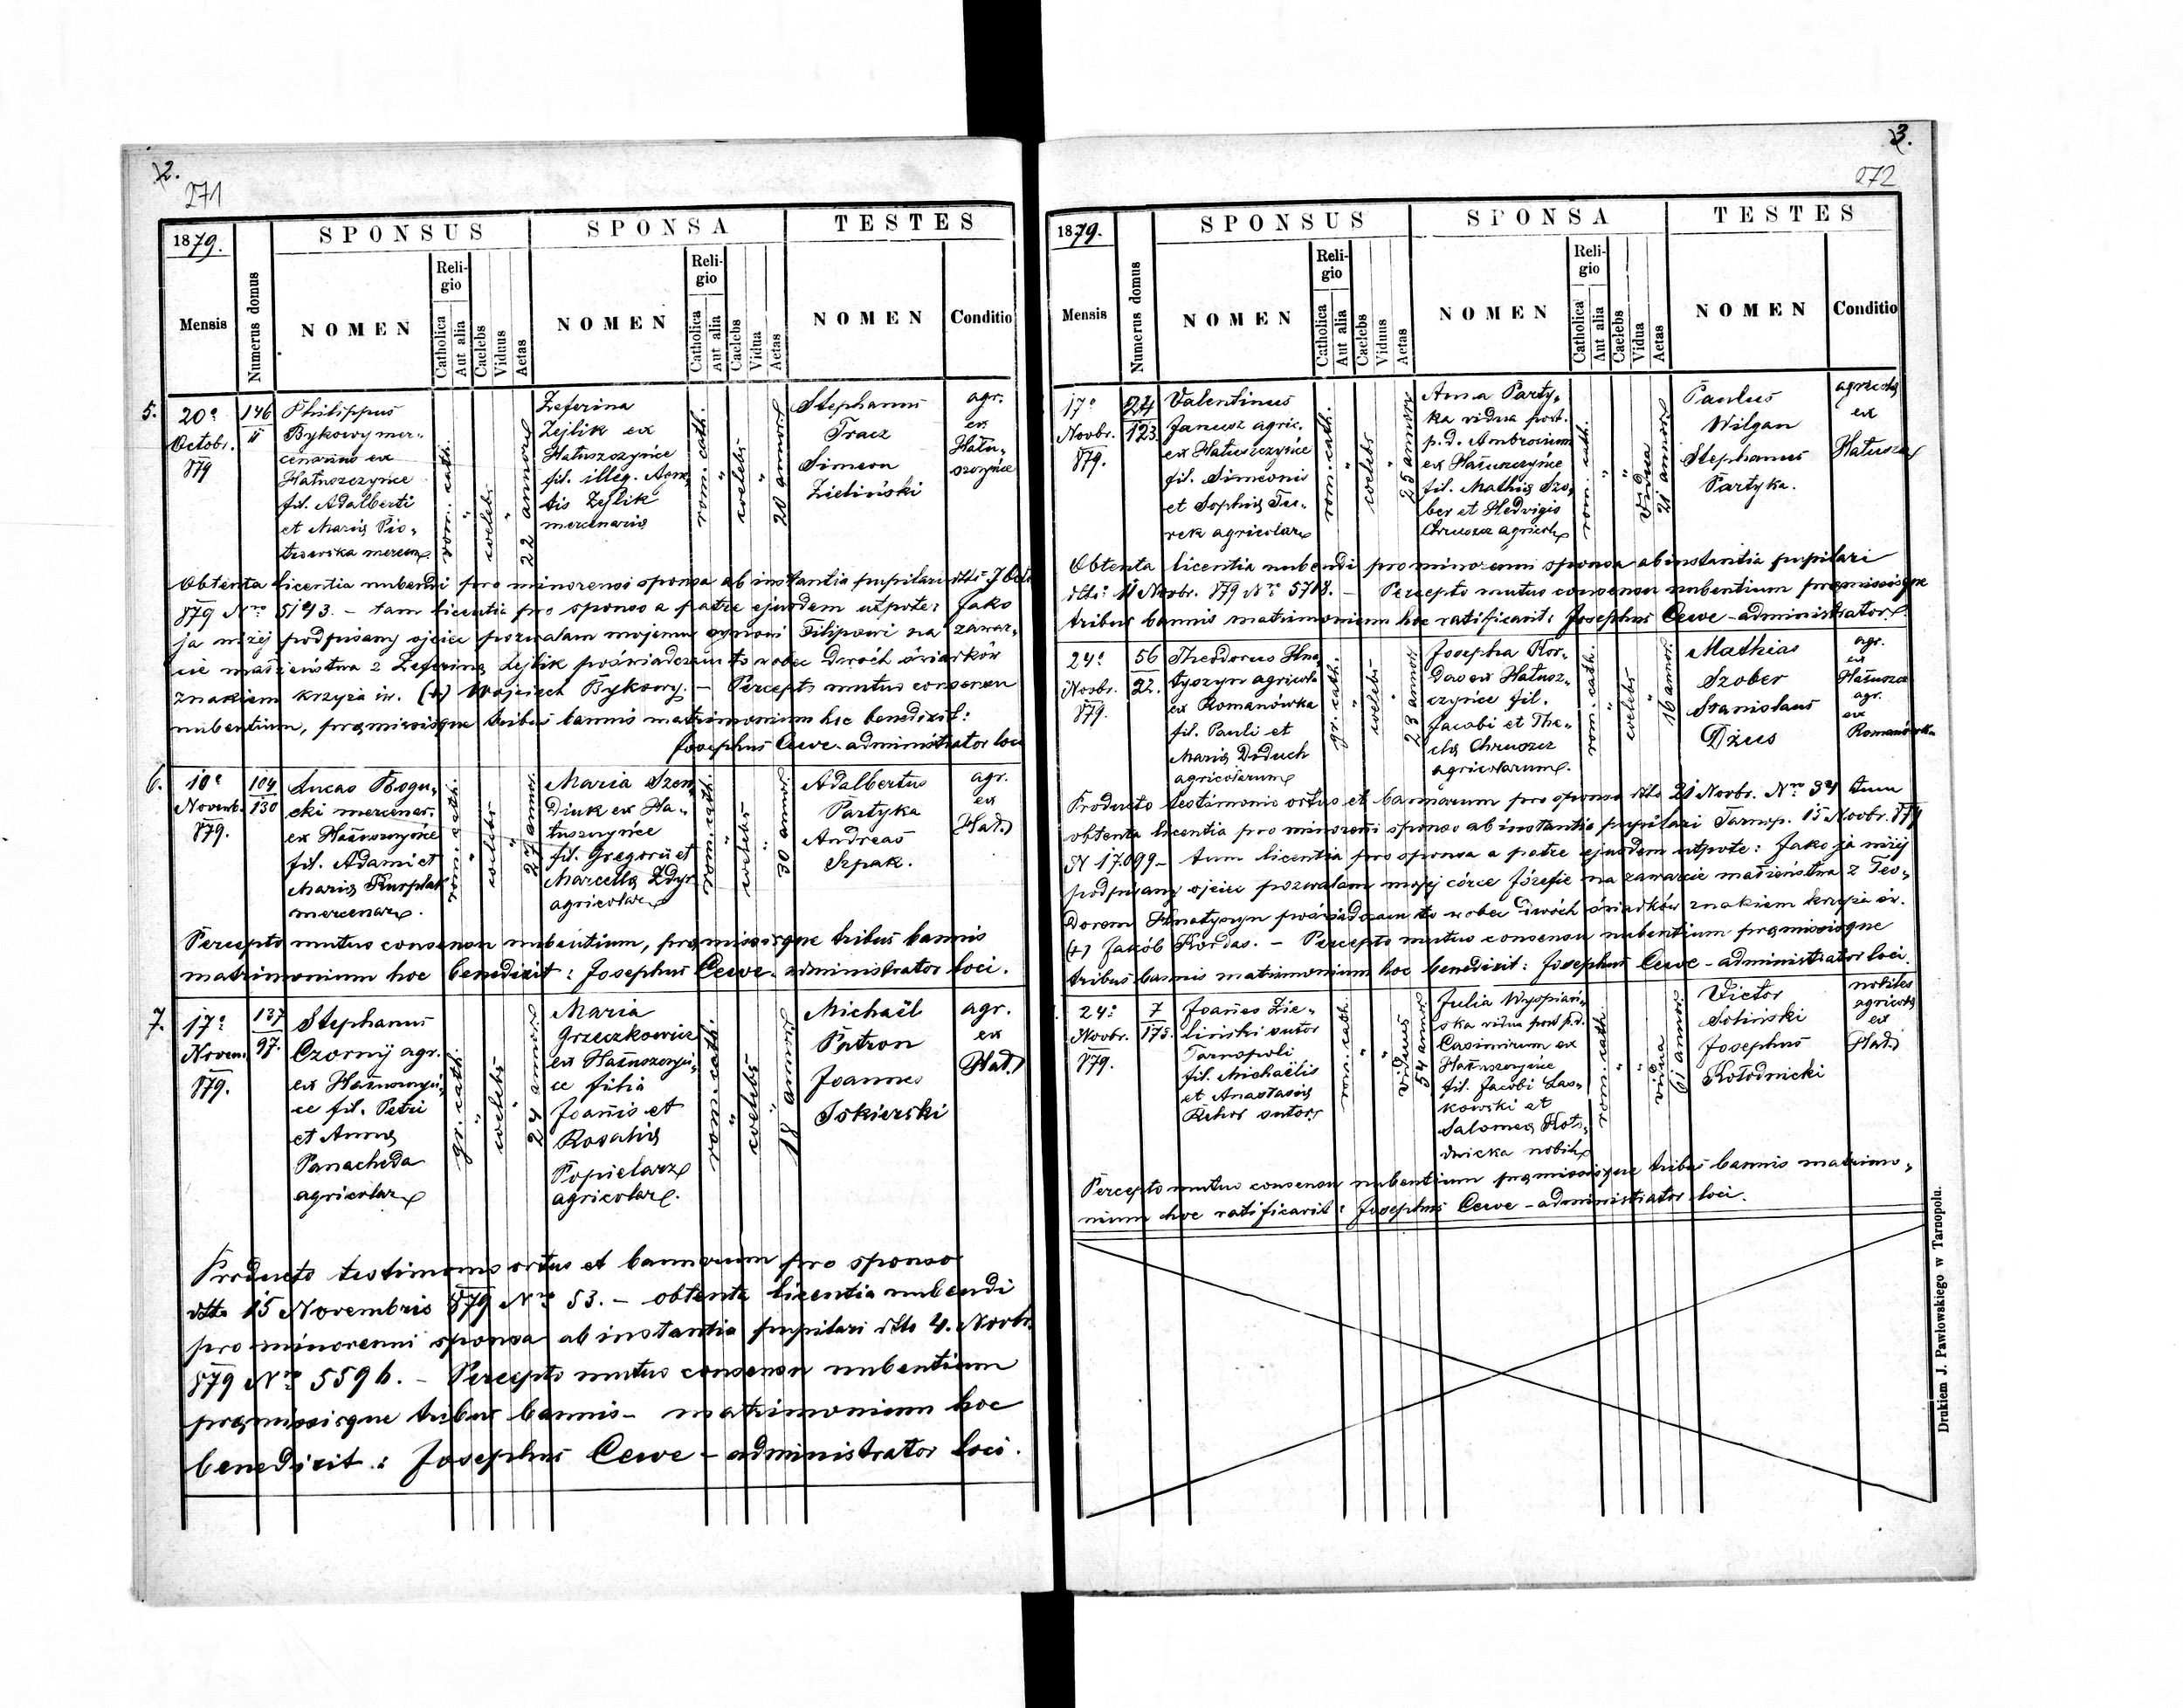 2.
271
1879.
SPONSUS
SPONSA
TESTES
Mensis
Numerus domus
NOMEN
Religio
Catholica
Aut alia
Caelebs
Viduus
Aetas
NOMEN
Religio
Catholica
Aut alia
Caelebs
Vidua
Aetas
NOMEN
Conditio
5.
20ª
Octobr.
879
146
11
Philippus
Bykowy mer„
cenarius ex
Hałuszczyńce
fil. Adalberti
et Mariæ Pio„
trowska mercen.
rom. cath.
"
coelebs
"
22 annorum
Zeferina
Zejlik ex
Hałuszczyńce
fil. illeg. Agne„
tis Zejlik
mercenariæ
rom. cath.
"
coelebs
"
20 annorum
Stephanus
Tracz
Simeon
Zieliński
agr.
ex
Hału„
szczyńce
Obtenta licentia nubendi pro minorenni sponsa ab instantia pupilari dtto 7 Oct.
879 Nro 5193. – tam licentia pro sponso a patre ejusdem utpote: Jako
ja niżej podpisany ojciec pozwalam mojemu synowi Filipowi na zawar„
cie małżeństwa z Zeferiną Zejlik poświadczam to wobec dwóch świadków
znakiem krzyża św. (+) Wojciech Bykowy. – Percepto mutuo consensu
nubentium, præmissisque tribus bannis matrimonium hoc benedixit:
Josephus Cewe administrator loci
6.
10ª
Novemb.
879.
104
130
Lucas Bogu„
cki mercenar.
ex Hałuszczyńce
fil. Adami et
Mariæ Kurplak
mercenar.
rom. cath.
"
coelebs
"
27 annor.
Maria Szen
Diuk ex Ha„
łuszczyńce
fil. Gregorii et
Marcellæ Zdyr
agricolar.
rom. cath.
"
coelebs
"
30 annor.
Adalbertus
Partyka
Andreas
Szpak.
agr.
ex
Hał.
Percepto mutuo consensu nubentium, præmissisque tribus bannis
matrimonium hoc benedixit: Josephus Cewe administrator loci.
7.
17ª
Novem.
879.
137
97.
Stephanus
Czornÿ agr.
ex Hałuszczyń„
ce fil. Petri
et Annæ
Panacheda
agricolar.
gr. cath.
"
coelebs
"
24 annor.
Maria
Grzeczkowicz
ex Hałuszczyń„
ce filia
Joanis et
Rosaliæ
Popielarz
agricolar.
rom. cath.
"
coelebs
"
18 annor.
Michaël
Putron
Joannes
Iskierski
agr.
ex
Hał.
Producto testimonio ortus et bannorum pro sponso
dtto 15 Novembris 879 Nro 53. – obtenta licentia nubendi
pro minorenni sponsa ab instantia pupilari dtto 4. Novbr.
879 Nro 5596. – Percepto mutuo consensu nubentium
præmissisque tribus bannis – matrimonium hoc
benedixit: Josephus Cewe – administrator loci.
3.
272
1879.
SPONSUS
SPONSA
TESTES
Mensis
Numerus domus
NOMEN
Religio
Catholica
Aut alia
Caelebs
Viduus
Aetas
NOMEN
Religio
Catholica
Aut alia
Caelebs
Vidua
Aetas
NOMEN
Conditio
17ª
Novbr.
879.
24
123.
Valentinus
Janusz agric.
ex Hałuszczyńce
fil. Simeonis
et Sophiæ Tu„
rek agricolar.
rom. cath.
"
coelebs
"
25 annor.
Anna Party„
ka vidua post.
p. d. Ambrosium
ex Hałuszczyńce
fil. Mathiæ Szo„
ber et Hedvigis
Chruszcz agricol.
rom. cath.
"
"
vidua
21 annor.
Paulus
Wilgan
Stephanus
Partyka.
agricolæ
ex
Hałuszcz.
Obtenta licentia nubendi pro minorenni sponsa ab instantia pupilari
dtto: 11 Novbr. 879 Nro 5718. – Percepto mutuo consensu nubentium præmissisque
tribus bannis matrimonium hoc ratificavit: Josephus Cewe – administrator.
24ª
Novbr.
879.
56
22.
Theodorus Hna„
tyszyn agricola
ex Romanówka
fil. Pauli et
Mariæ Diduch
agricolarum
gr. cath.
"
coelebs
"
23 annor.
Josepha Kor„
das ex Hałusz„
czyńce fil.
Jacobi et The„
clæ Chruszcz
agricolarum.
rom. cath.
"
coelebs
"
16 annor.
Mathias
Szober
Stanislaus
Dżus
agr.
ex
Hałuszcz
agr.
ex
Romanówk.
Producto testimonio ortus et bannorum pro sponso dtto 21 Novbr. Nro 34 tum
obtenta licentia pro minorenni sponso ab instantia pupilari Tarnop. 15 Novbr. 879
N 17.099 – tum licentia pro sponsa a patre ejusdem utpote: Jako ja niżej
podpisany ojciec pozwalam mojej córce Józefie na zawarcie małżeństwa z Teo„
dorem Hnatyszyn poświadczam to wobec dwóch świadków znakiem krzyża św.
(+) Jakób Kordas. – Percepto mutuo consensu nubentium præmissisque
tribus bannis matrimonium hoc benedixit: Josephus Cewe – administrator loci.
24ª
Novbr.
879.
7
175.
Joanes Zie„
liński sutor
Tarnopoli
fil. Michaëlis
et Anastasiæ
Rehor sutor.
rom. cath.
"
"
viduus
54 annor.
Julia Wyspiań„
ska vidua post p. d.
Casimirum ex
Hałuszczyńce
fil. Jacobi Las„
kowski et
Salomeæ Koło„
dnicka nobil.
rom. cath.
"
"
vidua
61 annor.
Victor
Soliński
Josephus
Kołodnicki
nobiles
agricolæ
ex
Hał.
Percepto mutuo consensu nubentium præmissisque tribus bannis matrimo„
nium hoc ratificavit: Josephus Cewe – administrator loci.
Drukiem J. Pawłowskiego w Tarnopolu.